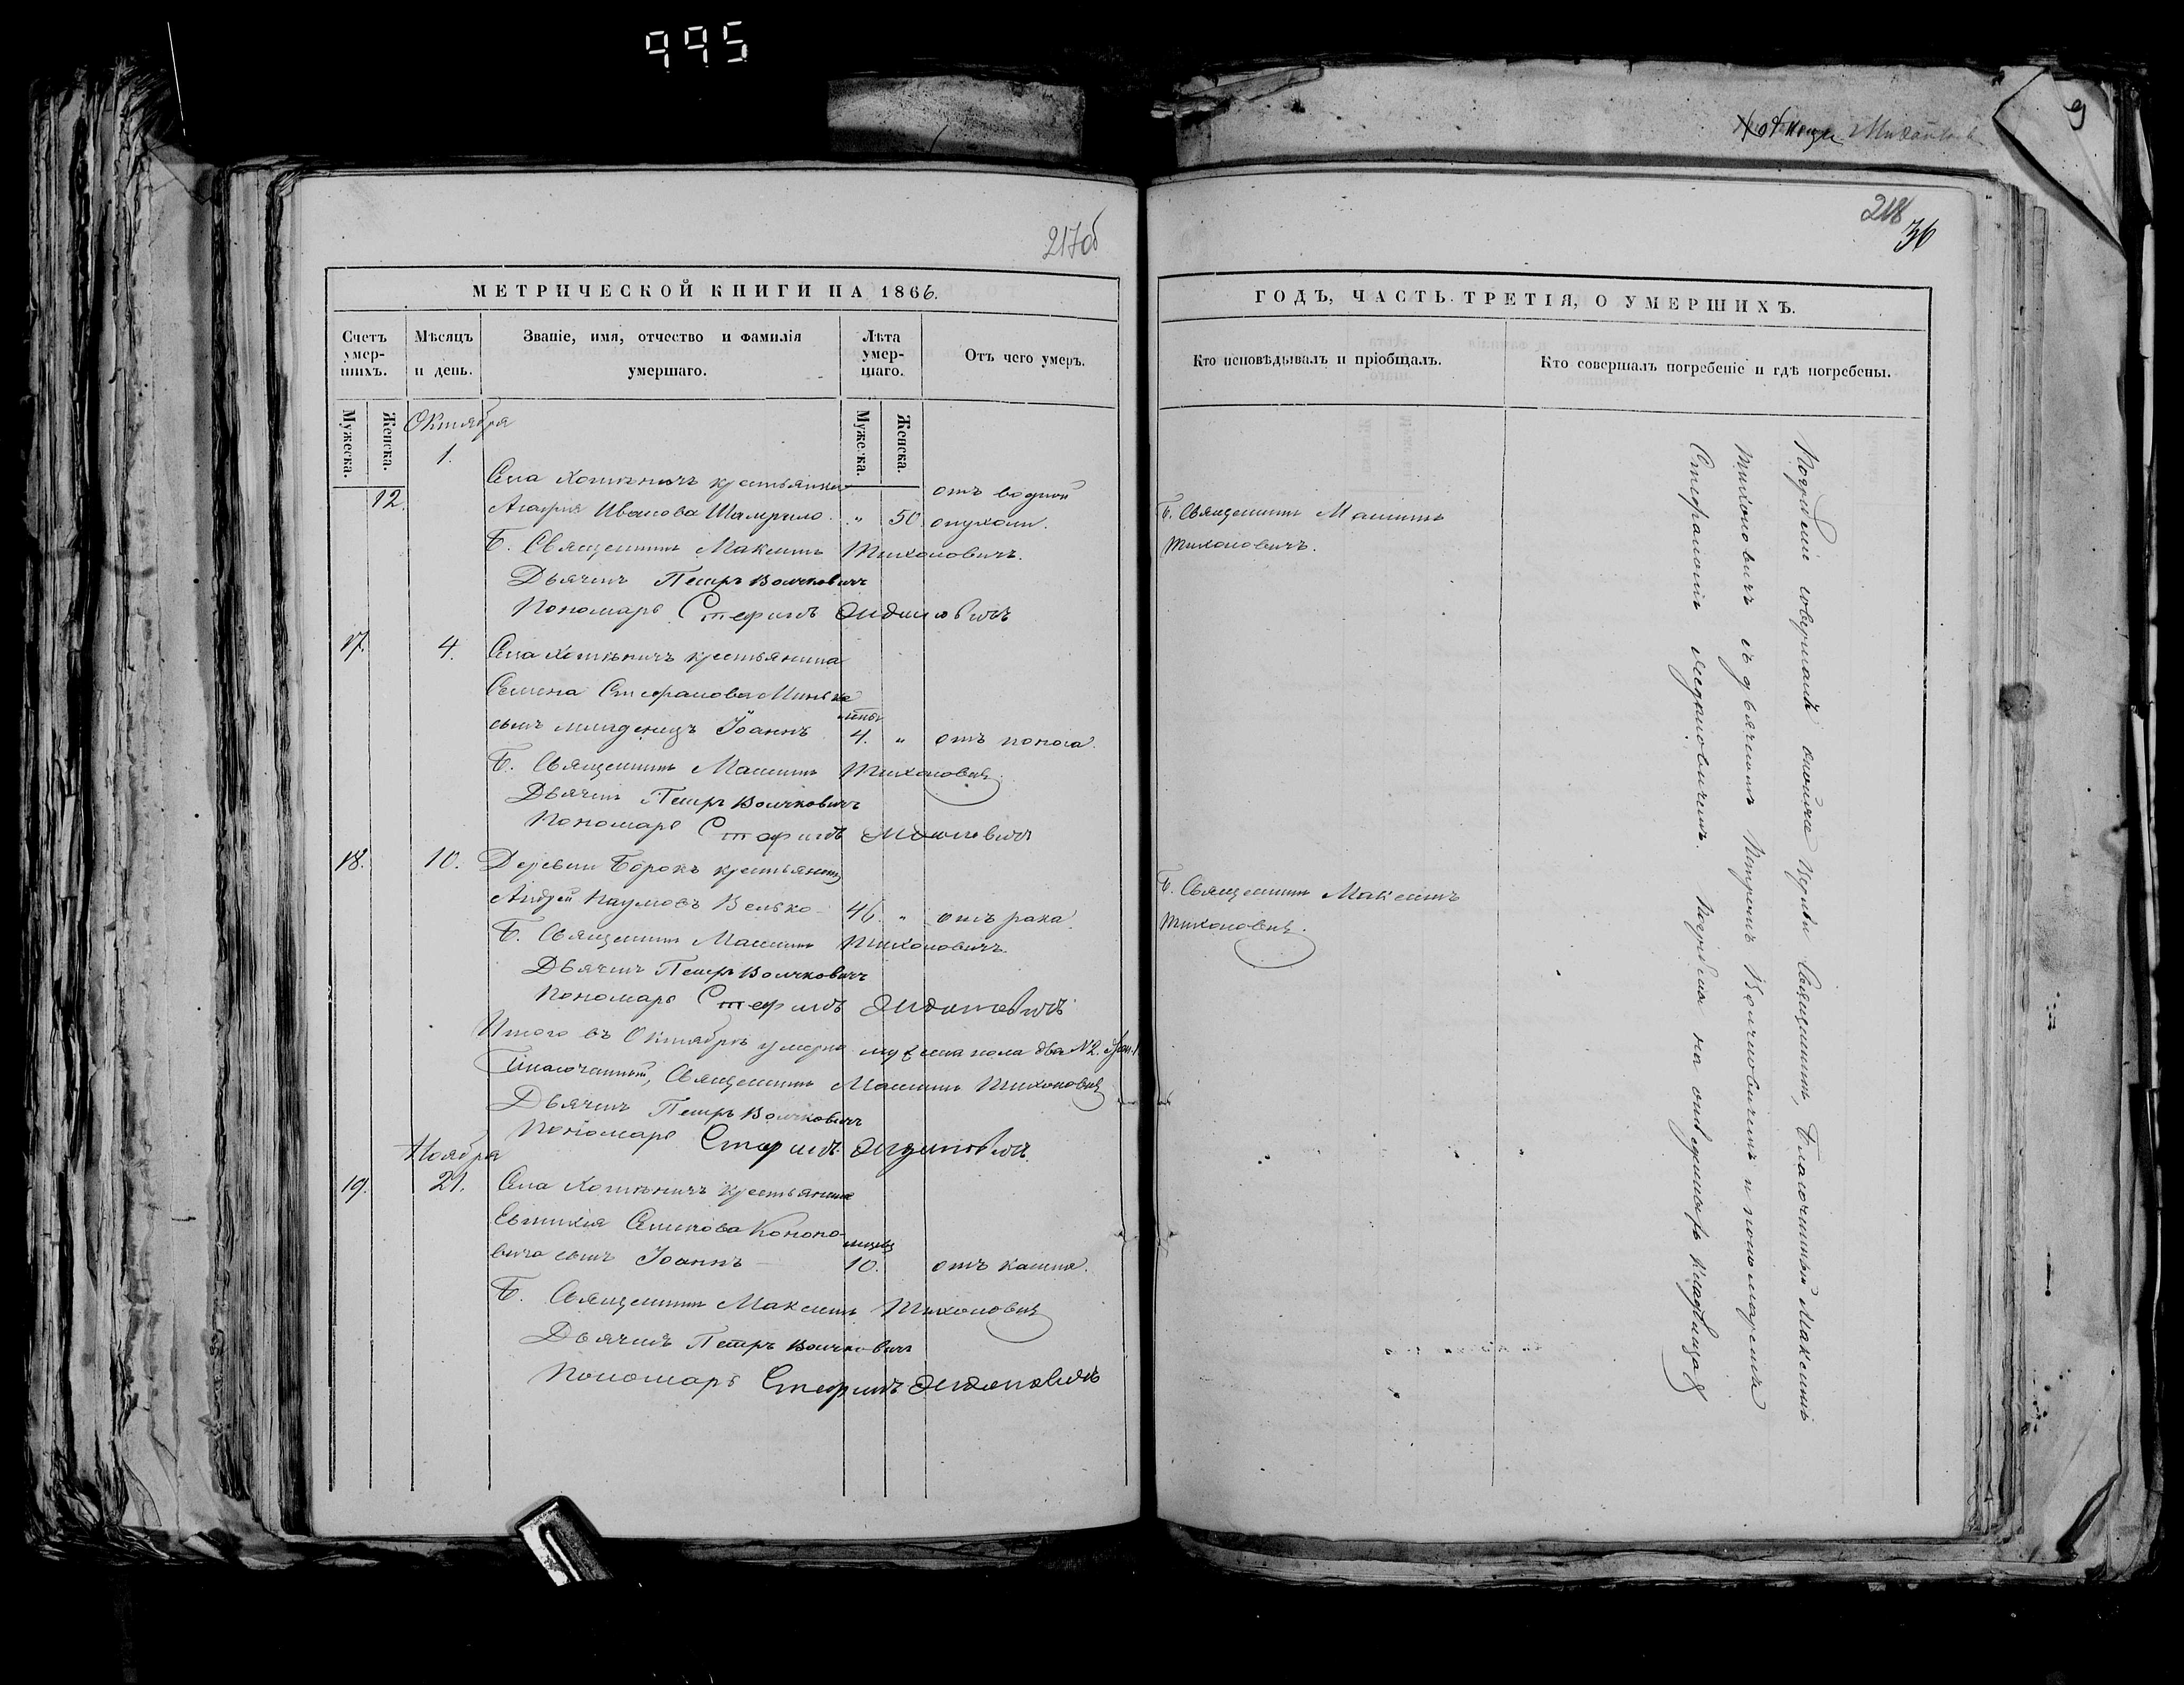 995
9
217об
218
36
МЕТРИЧЕСКОЙ КНИГИ НА 1866.
Счетъ умер-шихъ.
Мѣсяцъ и день.
Званіе, имя, отчество и фамилія умершаго.
Лѣта умер-шаго.
Отъ чего умеръ.
Мужеска.
Женска.
Мужеска.
Женска.
Октября
1.
Села Хотыничъ крестьянка
12. Агафія Иванова Шамрило " 50 отъ водной опухоли.
Б. Священникъ Максимъ Тихоновичъ.
Дьячикъ Петръ Волчковичъ
Пономарь Стефанъ
17. 4. Села Хотыничъ крестьянина
Семена Стефанова
сынъ младенецъ Іоаннъ 4. " отъ поноса.
Б. Священникъ Максимъ Тихоновичъ
Дьячикъ Петръ Волчковичъ
Пономарь Стефанъ
18. 10. Деревни Борокъ крестьянинъ
Андрей Наумовъ Велько 46. " отъ рака.
Б. Священникъ Максимъ Тихоновичъ.
Дьячикъ Петръ Волчковичъ
Пономарь Стефанъ
Итого въ Октябрѣ умерло мужеска пола два №2. Жен. 1
Благочинный, Священникъ Максимъ Тихоновичъ
Дьячикъ Петръ Волчковичъ
Пономарь Стефанъ
Ноября
19. 21. Села Хотыничъ крестьянина
Евтихія Семенова Кононо-
вича сынъ Іоаннъ 10. отъ кашля.
Б. Священникъ Максимъ Тихоновичъ
Дьячикъ Петръ Волчковичъ
Пономарь Стефанъ
ГОДЪ, ЧАСТЬ ТРЕТІЯ, О УМЕРШИХЪ.
Кто исповѣдывалъ и пріобщалъ.
Кто совершалъ погребеніе и гдѣ погребены.
Б. Священникъ Максимъ
Тихоновичъ.
Б. Священникъ Максимъ
Тихоновичъ.
Погребеніе совершалъ Церкви Священникъ, Благочинный Максимъ
Тихоновичъ съ дьячкомъ Петромъ Волчковичемъ и пономаремъ
Стефаномъ Погребены на кладбищѣ